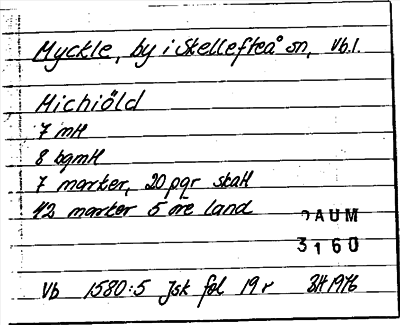 Myckle, by i Skellefteå sn, Vb.l.
Michiöld
7 mH
8 bgmH
7 marker, 20 pgr skatt
42 marker 5 öre land
DAUM
3160
Vb 1580:5 Jsk fol 19 r BH 1976